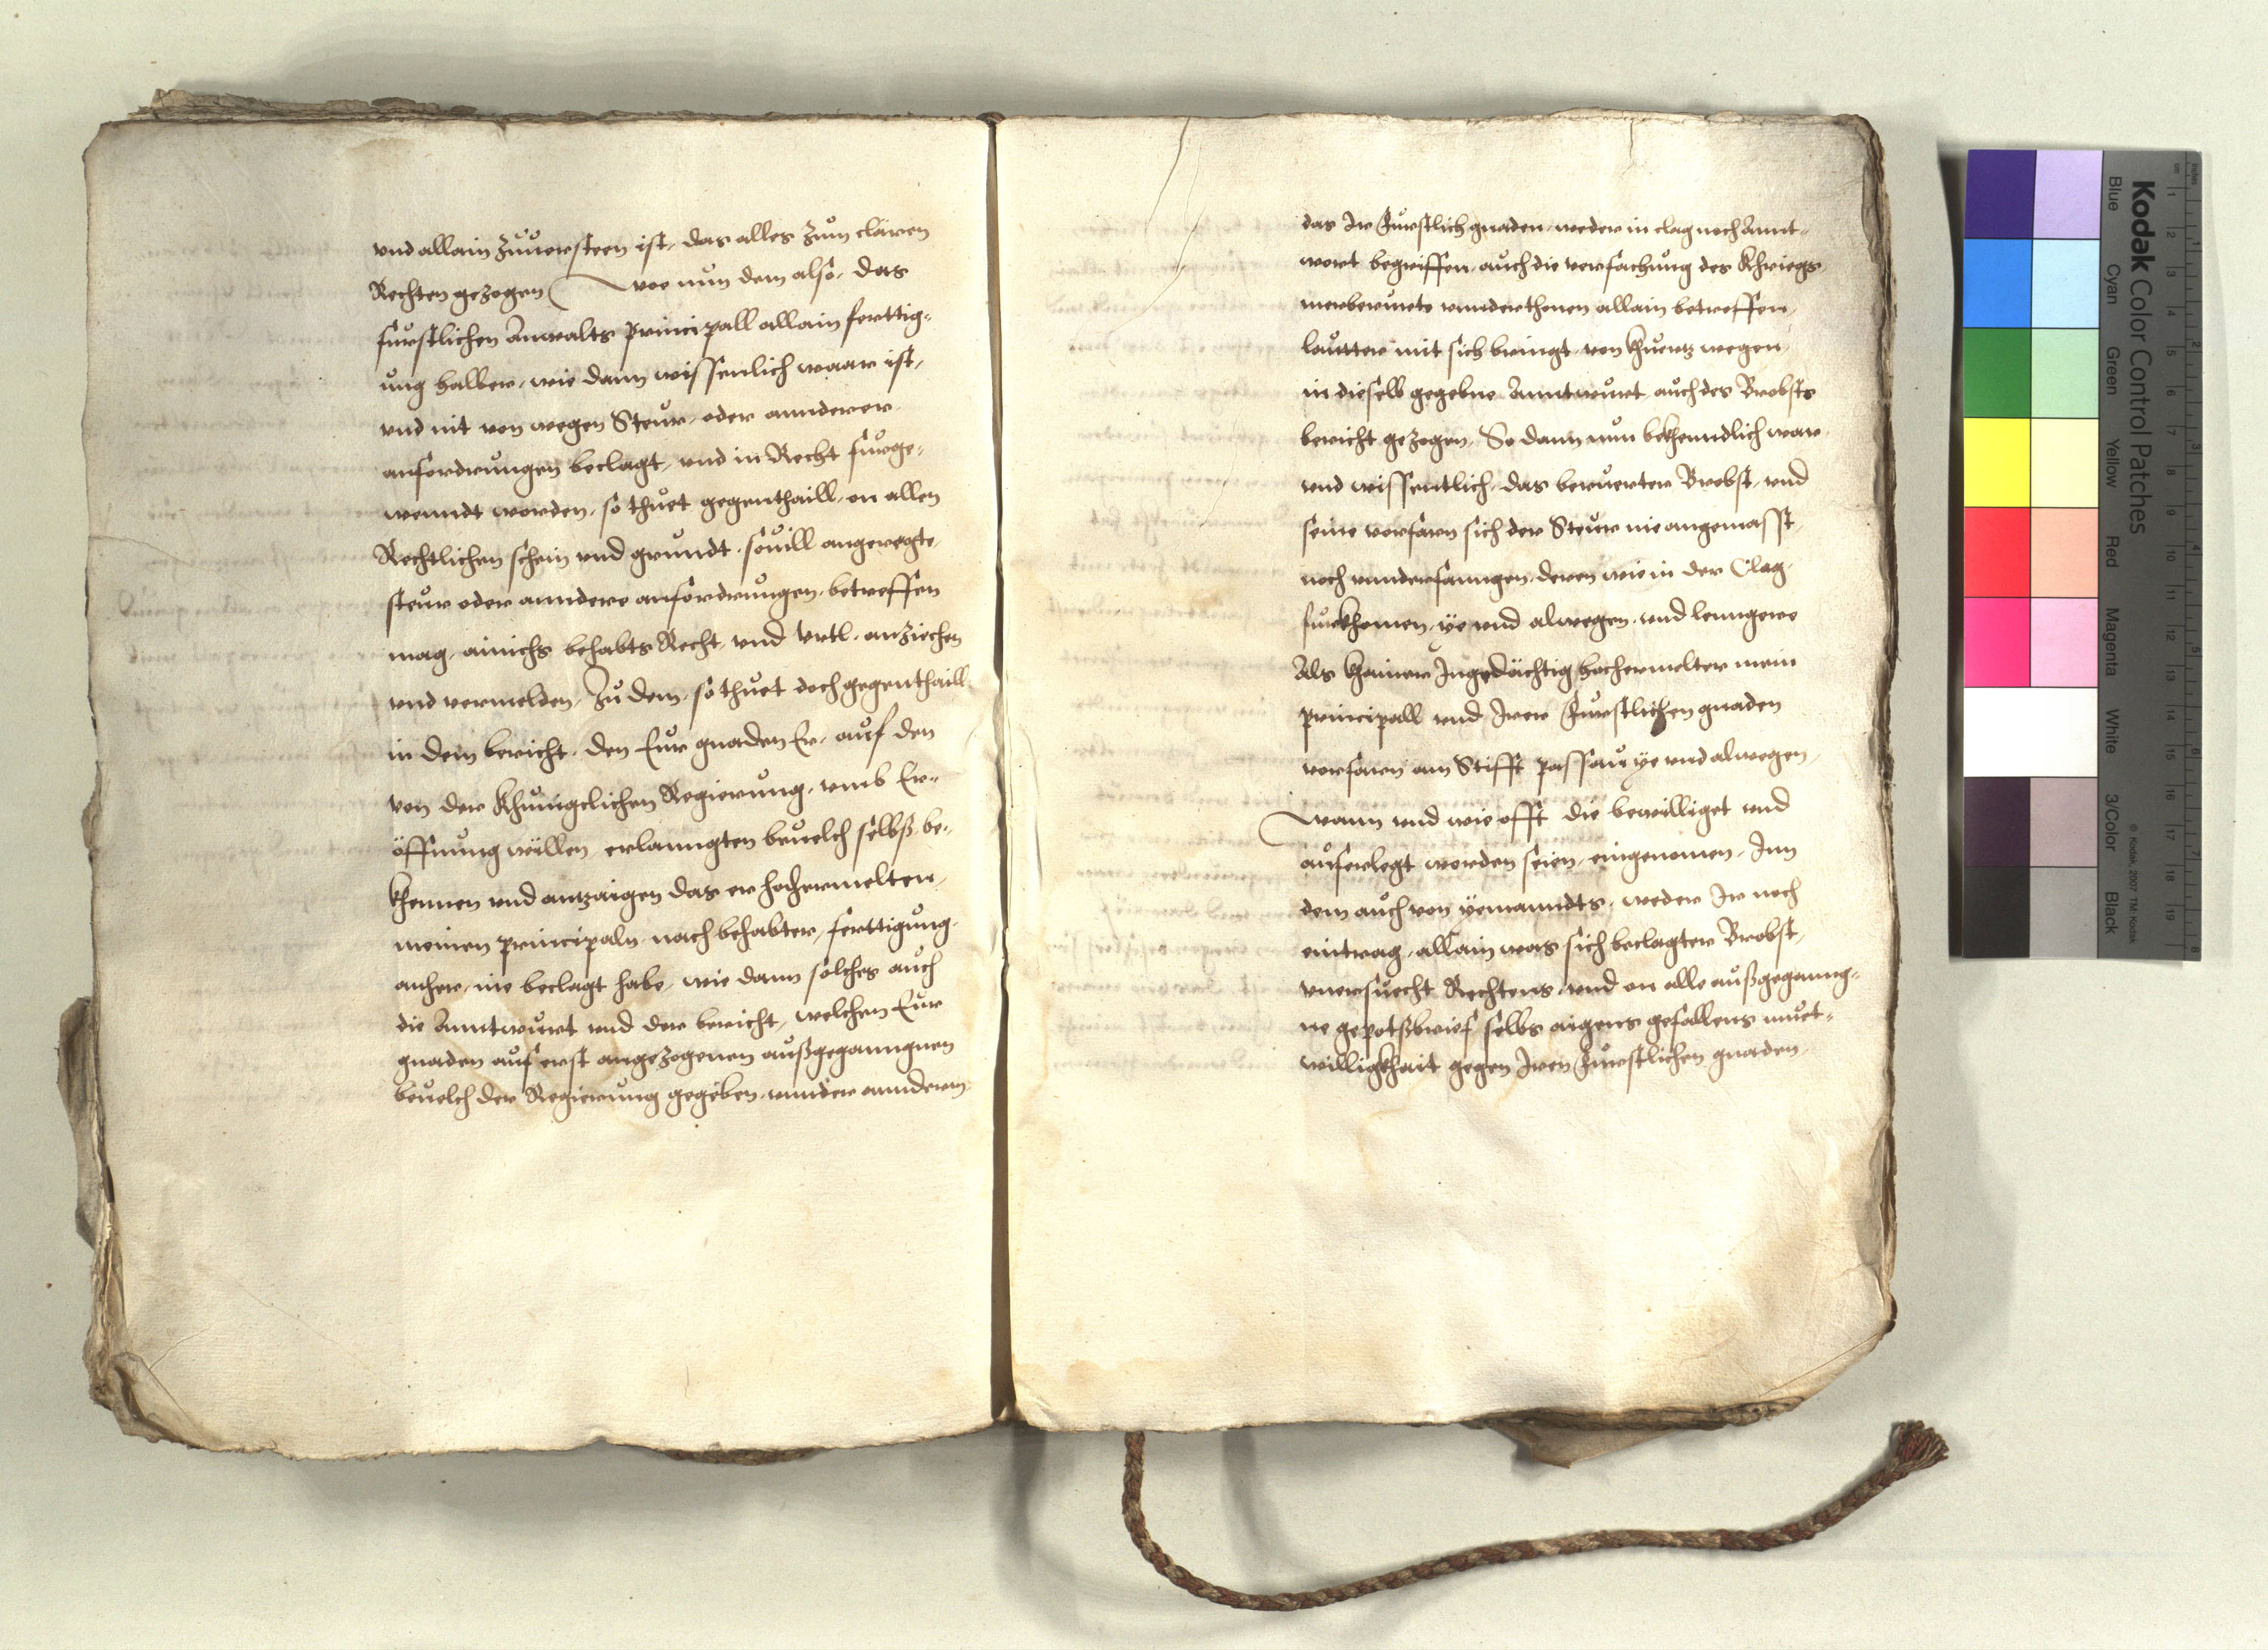 vnd allain zuuersteen ist, das alles zum claren
Rechten gezogen wee nun dem also, das
furstlichen Anwalts principall allain ferttig-
ung halber, wie dann wissenlich waar ist,
vnd nit von wegen Steur, oder annderer
anfordrungen beclagt, vnd in Recht furge-
wenndt worden, so thuet gegenthaill, on allen
Rechtlichen schein vnd grundt, souill angeregte
steur oder anndere anfordrungen, betreffen
mag, ainichs behabts Recht, vnd Vrtl, anziechen
vnd vermelden, Zu dem, so thuet doch gegenthaill
in dem bericht, den Eur gnaden Er, auf den
von der Khunigclichen Regierung, vmb Er-
öffnung willen, erlanngten beuelch selbß be-
khennen vnd antzaigen das er hochermelten,
meinen principaln nach behabter, ferttigung
anher, nie beclagt habe, wie dann solches auch
die Anntwurt vnd der bericht, welchen Eur
gnaden auf erst angezogenen außgeganngnen
beuelch der Regierung gegeben, vnnder annderm
das Ir Furstlich gnaden, weder in clag noch Annt-
wort begriffen, auch die verfachung des Khriegs
merberurte vnnderthonen allain betreffen,
lautter mit sich bringt, von khurtz wegen
in dieselb gegebne Anntwurt, auch des Brobsts
bericht gezogen, So dann nun bekhenndlich war
vnd wissentlich, das berurter Brobst, vnd
seine vorfarn sich der Steur nie angemasst,
noch vnnderfanngen, deren wie in der Clag,
furkhomen, ye vnd alwegen, vnd lenngere
Als khainer Ingedächtig hochermelter mein
principall vnd Irer Furstlichen gnaden
vorfarn am Stifft passau ye vnd alwegen,
wann vnd wie offt die bewilliget vnd
auferlegt worden seien, eingenomen, Inn
dem auch von yemanndts, weder Ir noch
eintrag, allain was sich beclagter Brobst,
vnersuecht Rechtens, vnd on alle außgeganng-
ne gepotßbrief selbs aigens gefallens muet-
willigkhait gegen Iren Furstlichen gnaden
Kodak Color Control Patches
Blue Cyan Green Yellow Red Magenta White 3/Color Black
© Kodak, 2007 TM: Kodak
inches 1 2 3 4 5 6 7 8
cm 1 2 3 4 5 6 7 8 9 10 11 12 13 14 15 16 17 18 19